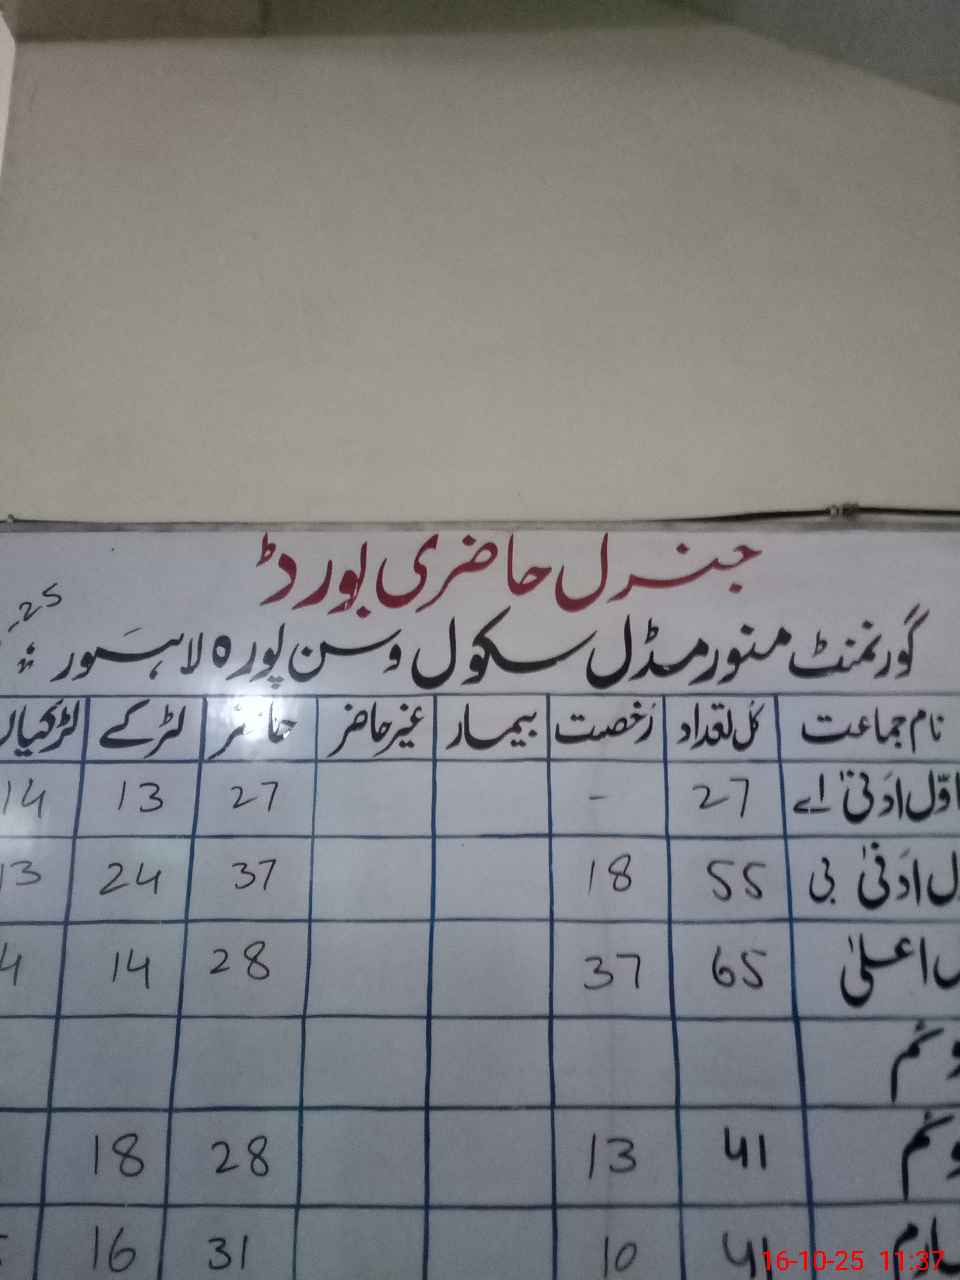 جنرل حاضری بورڈ
گورنمنٹ منور مڈل سکول وسن پورہ لاہور
نام جماعت کل تعداد رخصت بیمار غیر حاضر حاضر لڑکے
اول ادنیٰ اے 27 - 27 13 14
ادنیٰ بی 55 18 37 24 13
اعلیٰ 65 37 28 14
41 13 28 18
41 10 31 16
16-10-25 11:37